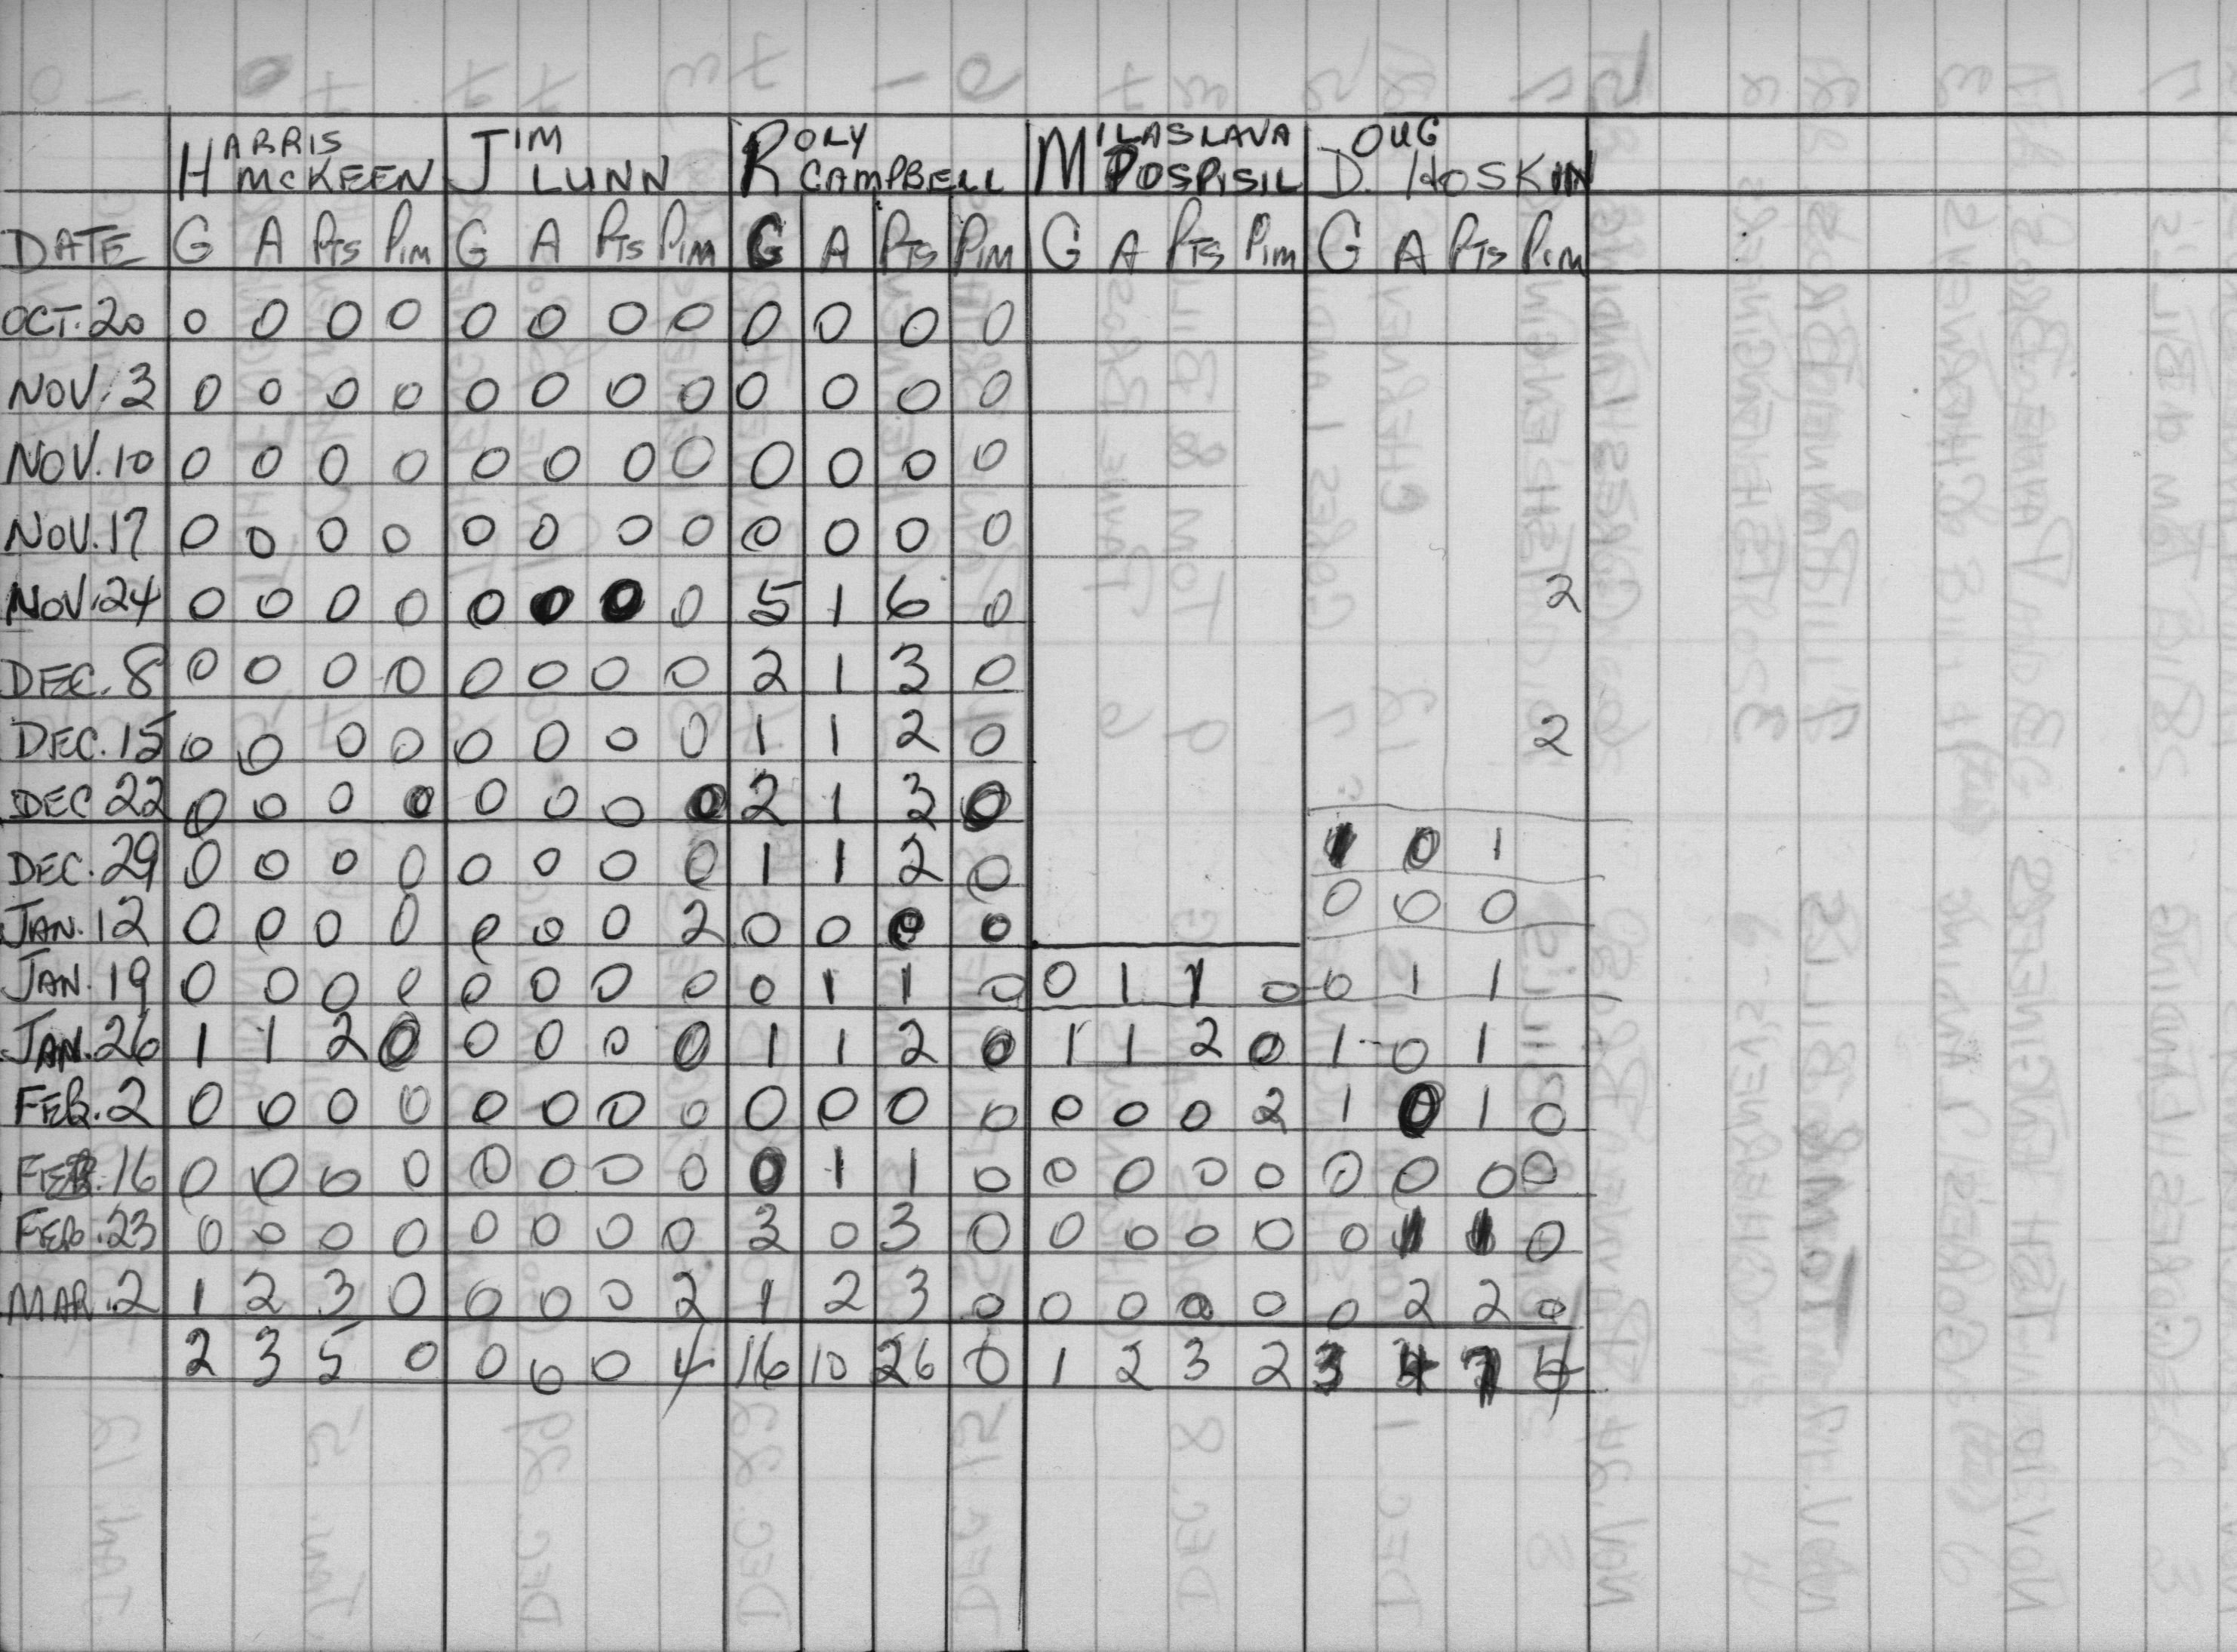 HARRIS JIM ROLY MILASLAVA DOUG
McKEEN LUNN CAMPBELL POSPISIL D. HOSKIN
DATE G A PTS PIM G A PTS PIM G A PTS PIM G A PTS PIM G A PTS PIM
OCT. 20 0 0 0 0 0 0 0 0 0 0 0 0
NOV. 3 0 0 0 0 0 0 0 0 0 0 0 0
NOV. 10 0 0 0 0 0 0 0 0 0 0 0 0
NOV. 17 0 0 0 0 0 0 0 0 0 0 0 0
NOV. 24 0 0 0 0 0 0 0 0 5 1 6 0 2
DEC. 8 0 0 0 0 0 0 0 0 2 1 3 0
DEC. 15 0 0 0 0 0 0 0 0 1 1 2 0 2
DEC 22 0 0 0 0 0 0 0 0 2 1 3 0
DEC. 29 0 0 0 0 0 0 0 0 1 1 2 0 1 0 1
JAN. 12 0 0 0 0 0 0 0 2 0 0 0 0 0 0 0
JAN. 19 0 0 0 0 0 0 0 0 0 1 1 0 0 1 1 0 0 1 1
JAN. 26 1 1 2 0 0 0 0 0 1 1 2 0 1 1 2 0 1 0 1
FEB. 2 0 0 0 0 0 0 0 0 0 0 0 0 0 0 0 2 1 0 1 0
FEB. 16 0 0 0 0 0 0 0 0 0 1 1 0 0 0 0 0 0 0 0 0
FEB. 23 0 0 0 0 0 0 0 0 3 0 3 0 0 0 0 0 0 1 1 0
MAR. 2 1 2 3 0 0 0 0 2 1 2 3 0 0 0 0 0 0 2 2 0
2 3 5 0 0 0 0 4 16 10 26 0 1 2 3 2 3 4 7 4